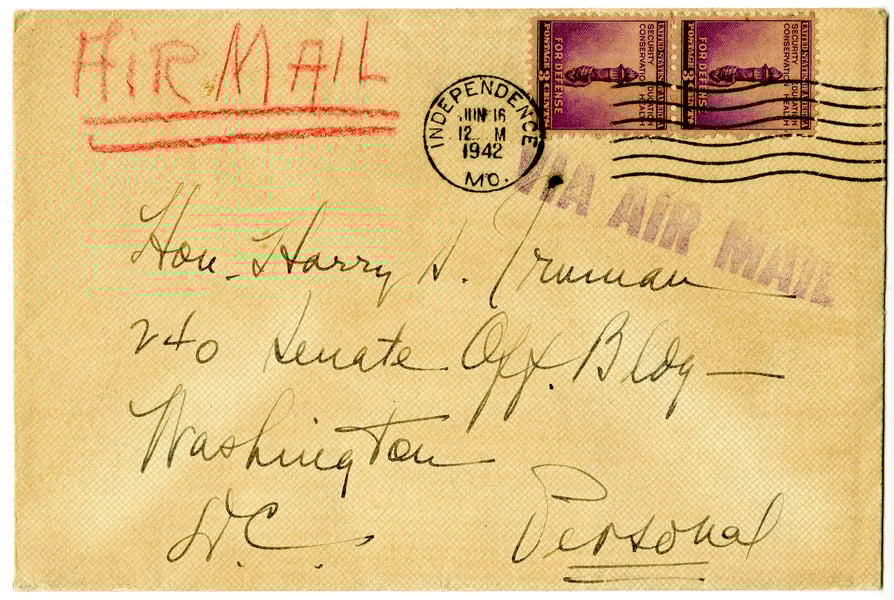 AIR MAIL
UNITED STATES OF AMERICA
SECURITY EDUCATION
CONSERVATION HEALTH
FOR DEFENSE
POSTAGE 3 CENTS
UNITED STATES OF AMERICA
SECURITY EDUCATION
CONSERVATION HEALTH
FOR DEFENSE
POSTAGE 3 CENTS
INDEPENDENCE
JUN 16
12 M
1942
MO.
VIA AIR MAIL
Hon. Harry S. Truman
240 Senate Off. Bldg—
Washington
D.C.
Personal